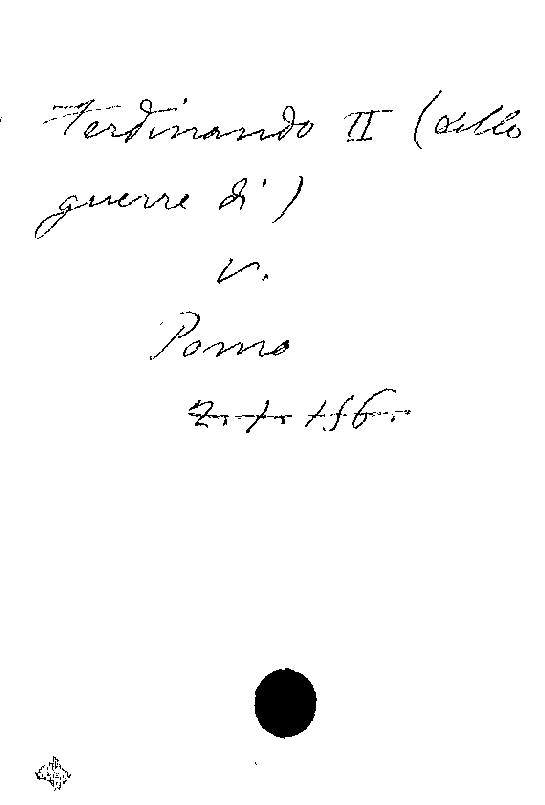 Ferdinando II (delle
guerre di)
v.
Pomo
Z. 7. 156.